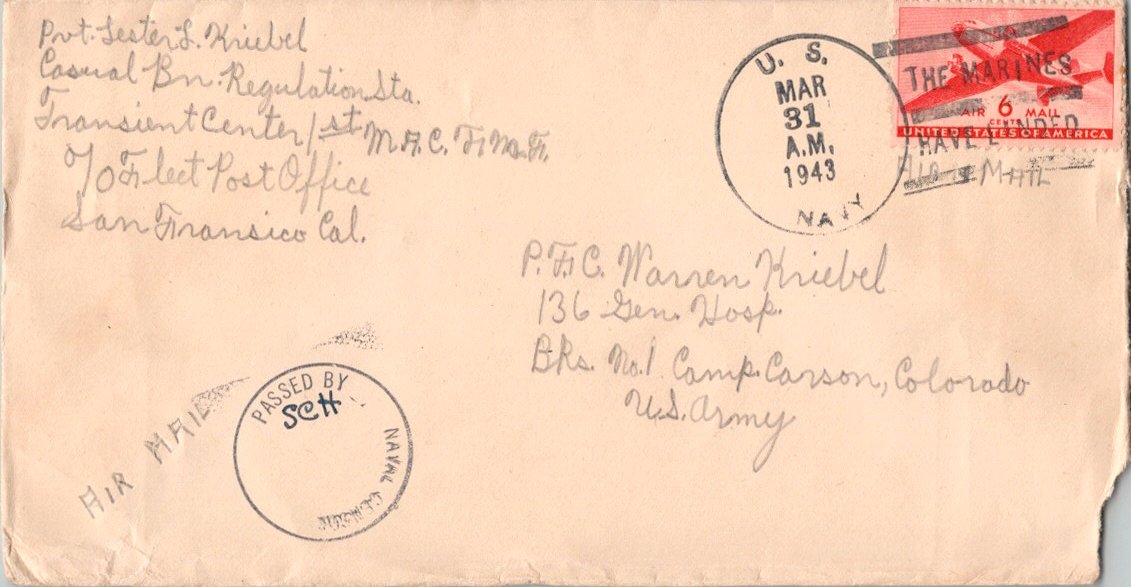 Pvt. Lester L. Kriebel
Casual Bn. Regulation Sta.
Transient Center / 1st M.A.C. F.M.F.
c/o Fleet Post Office
San Fransico Cal.
U. S.
MAR
31
A.M.
1943
NAVY
THE MARINES
HAVE LANDED
AIR 6 MAIL
CENTS
UNITED STATES OF AMERICA
AIR MAIL
P.F.C. Warren Kriebel
136 Gen. Hosp.
Brks. No. 1 Camp. Carson, Colorado
U.S. Army
PASSED BY
SCH
NAVAL CENSOR
AIR MAIL